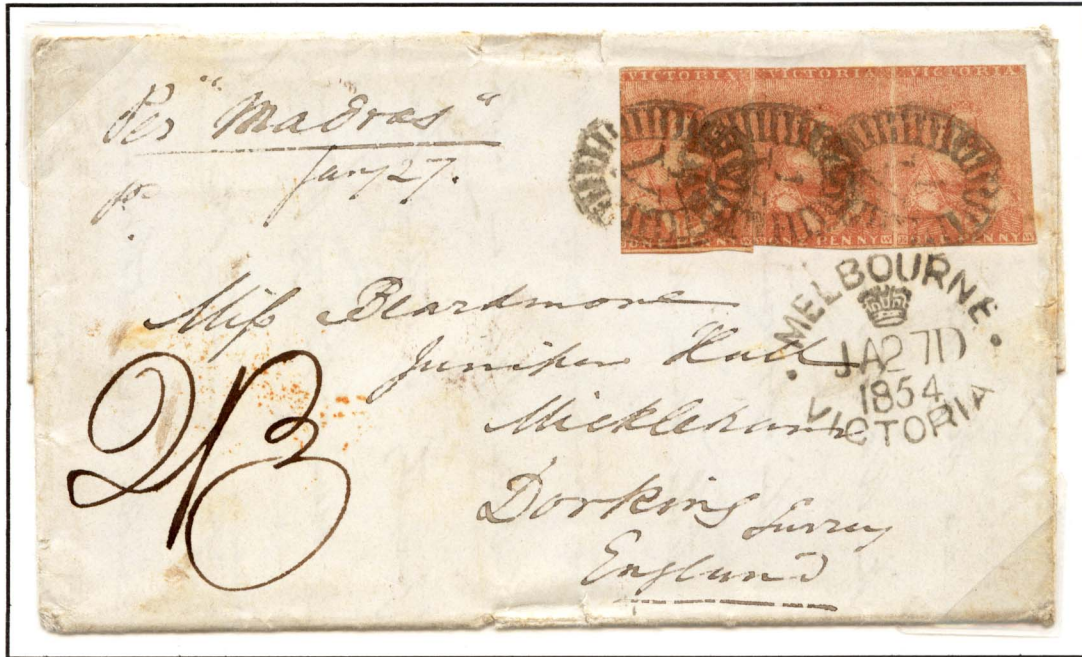 Per "Madras"
Jany 27.
VICTORIA VICTORIA VICTORIA
ONE PENNY PENNY
MELBOURNE
JA 27 D
1854
VICTORIA
Miss Beardmore
Juniper Hall
Mickleham
Dorking Surrey
England
2/3